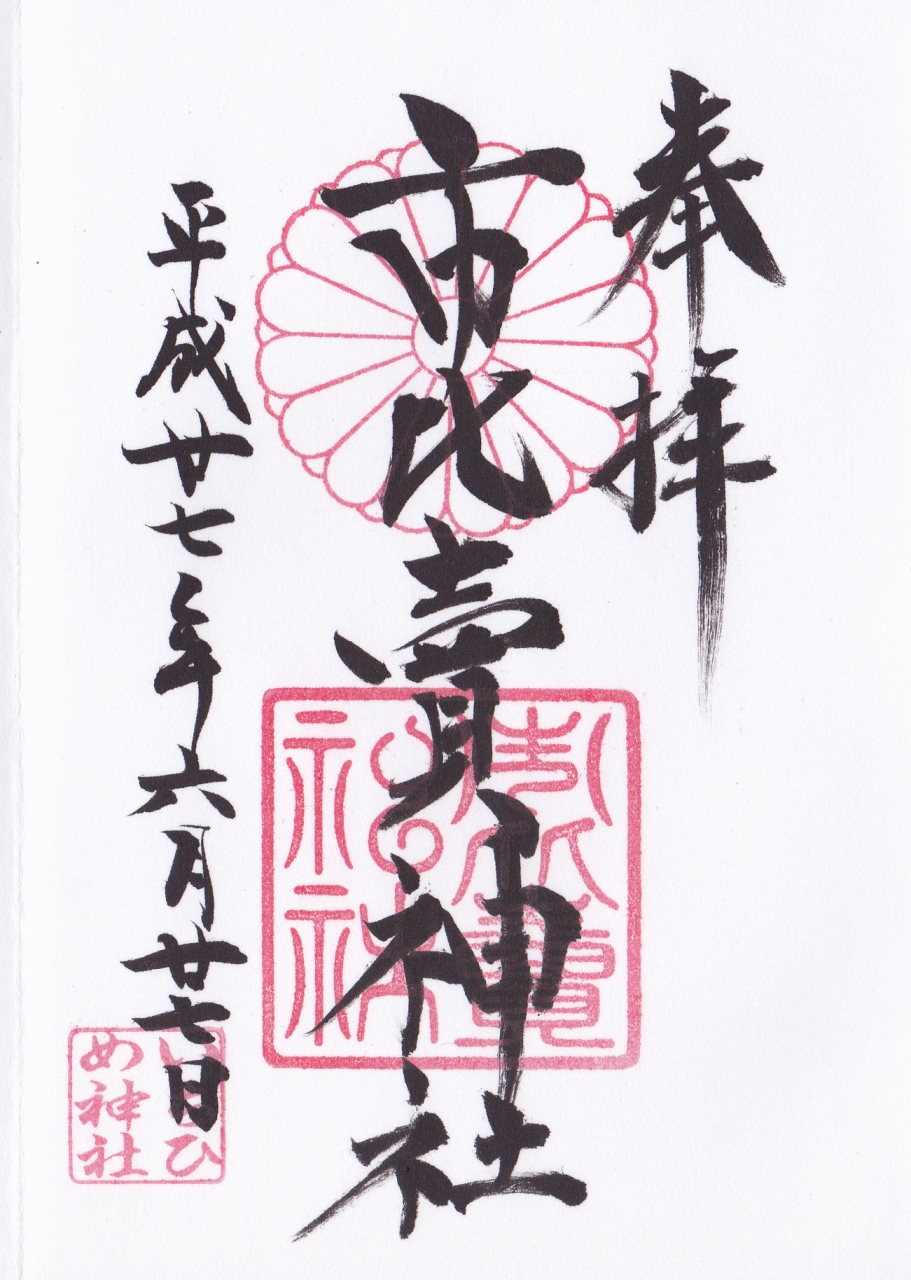 奉拝
市比賣神社
平成廿七年六月廿七日
いちひ
め神社